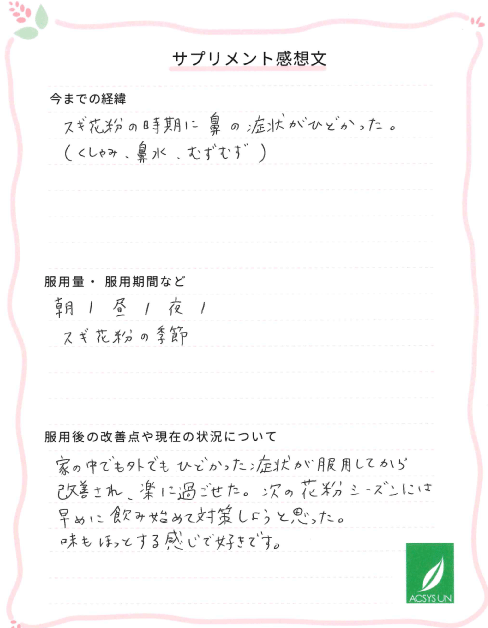 サプリメント感想文
今までの経緯
スギ花粉の時期に鼻の症状がひどかった。
(くしゃみ、鼻水、むずむず)
服用量・服用期間など
朝1 昼1 夜1
スギ花粉の季節
服用後の改善点や現在の状況について
家の中でも外でもひどかった症状が服用してから
改善され、楽に過ごせた。次の花粉シーズンには
早めに飲み始めて対策しようと思った。
味もほっとする感じで好きです。
ACSYS UN